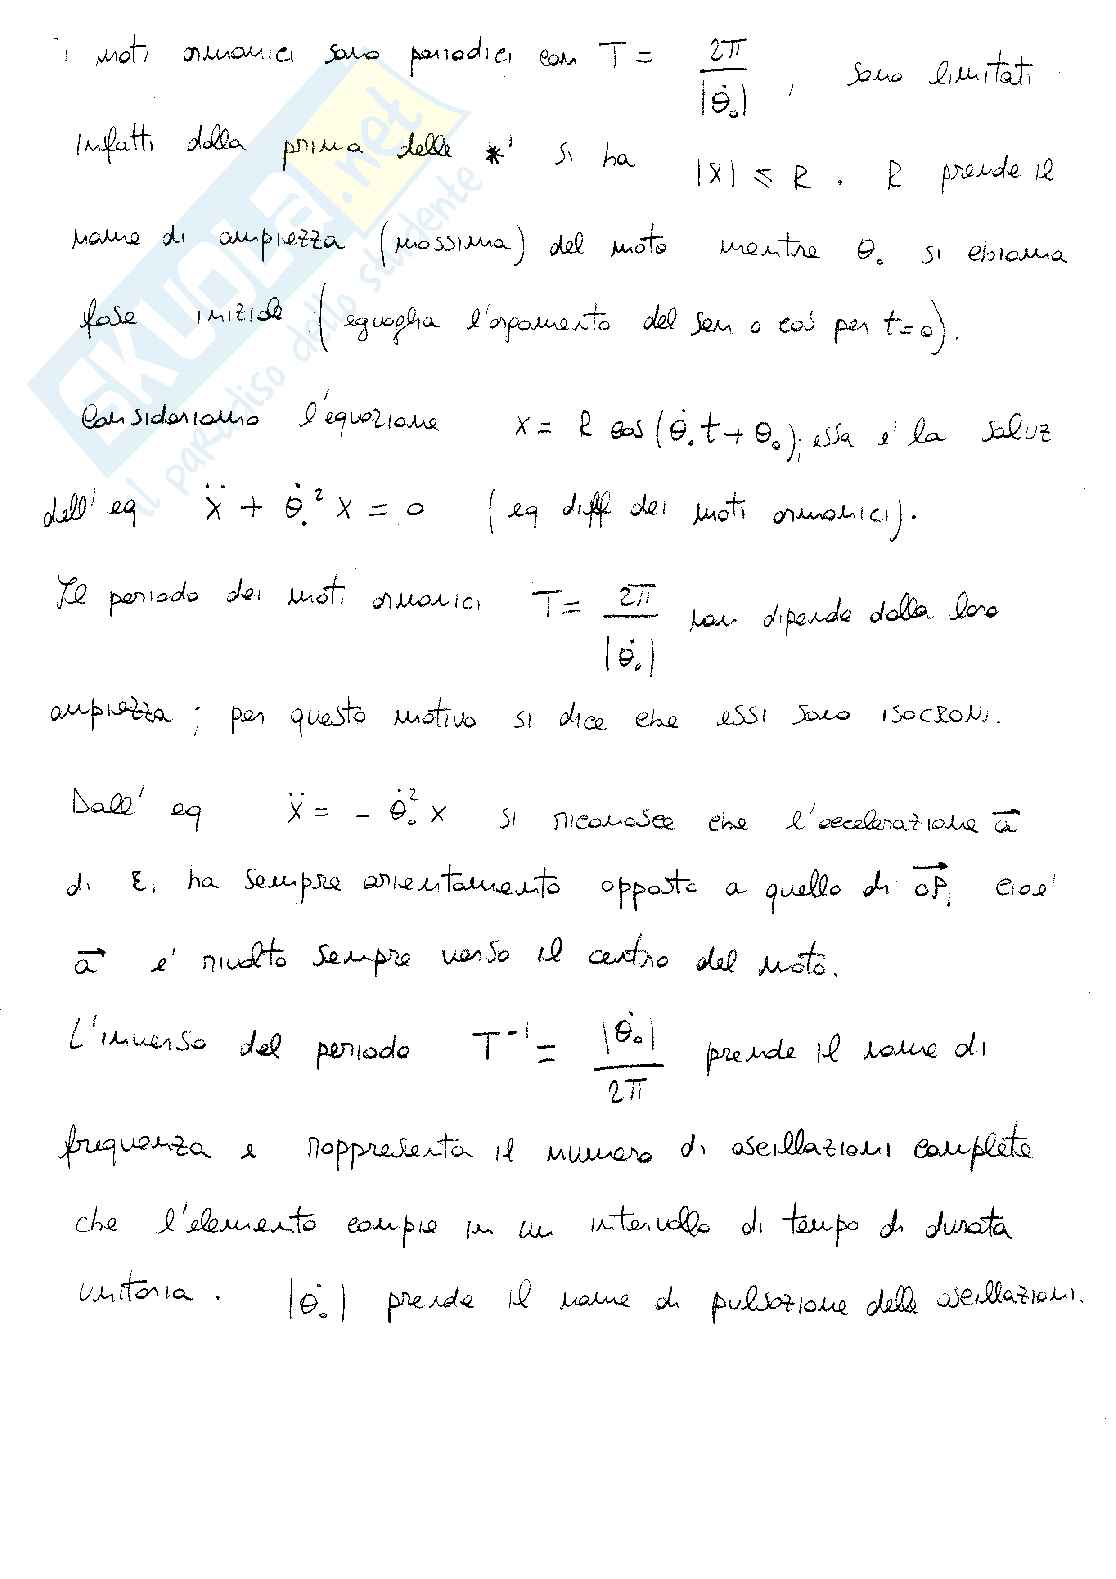 i moti armonici sono periodici con T = 2π / |θ̇₀| , sono limitati
infatti dalla prima delle *' si ha |x| ≤ R . R prende il
nome di ampiezza (massima) del moto mentre θ₀ si chiama
fase iniziale (eguaglia l'argomento del sen o cos per t=0).
Consideriamo l'equazione x = R cos(θ̇₀t + θ₀); essa e' la soluz
dell' eq ẍ + θ̇₀² x = 0 (eq diff dei moti armonici).
Il periodo dei moti armonici T = 2π / |θ̇₀| non dipende dalla loro
ampiezza; per questo motivo si dice che essi sono ISOCRONI.
Dall' eq ẍ = - θ̇₀² x si riconosce che l'accelerazione a⃗
di E, ha sempre orientamento opposto a quello di OP⃗, cioe'
a⃗ e' rivolto sempre verso il centro del moto.
L'inverso del periodo T⁻¹ = |θ̇₀| / 2π prende il nome di
frequenza e rappresenta il numero di oscillazioni complete
che l'elemento compie in un intervallo di tempo di durata
unitaria. |θ̇₀| prende il nome di pulsazione delle oscillazioni.
SKUOLA.net
il paradiso dello studente